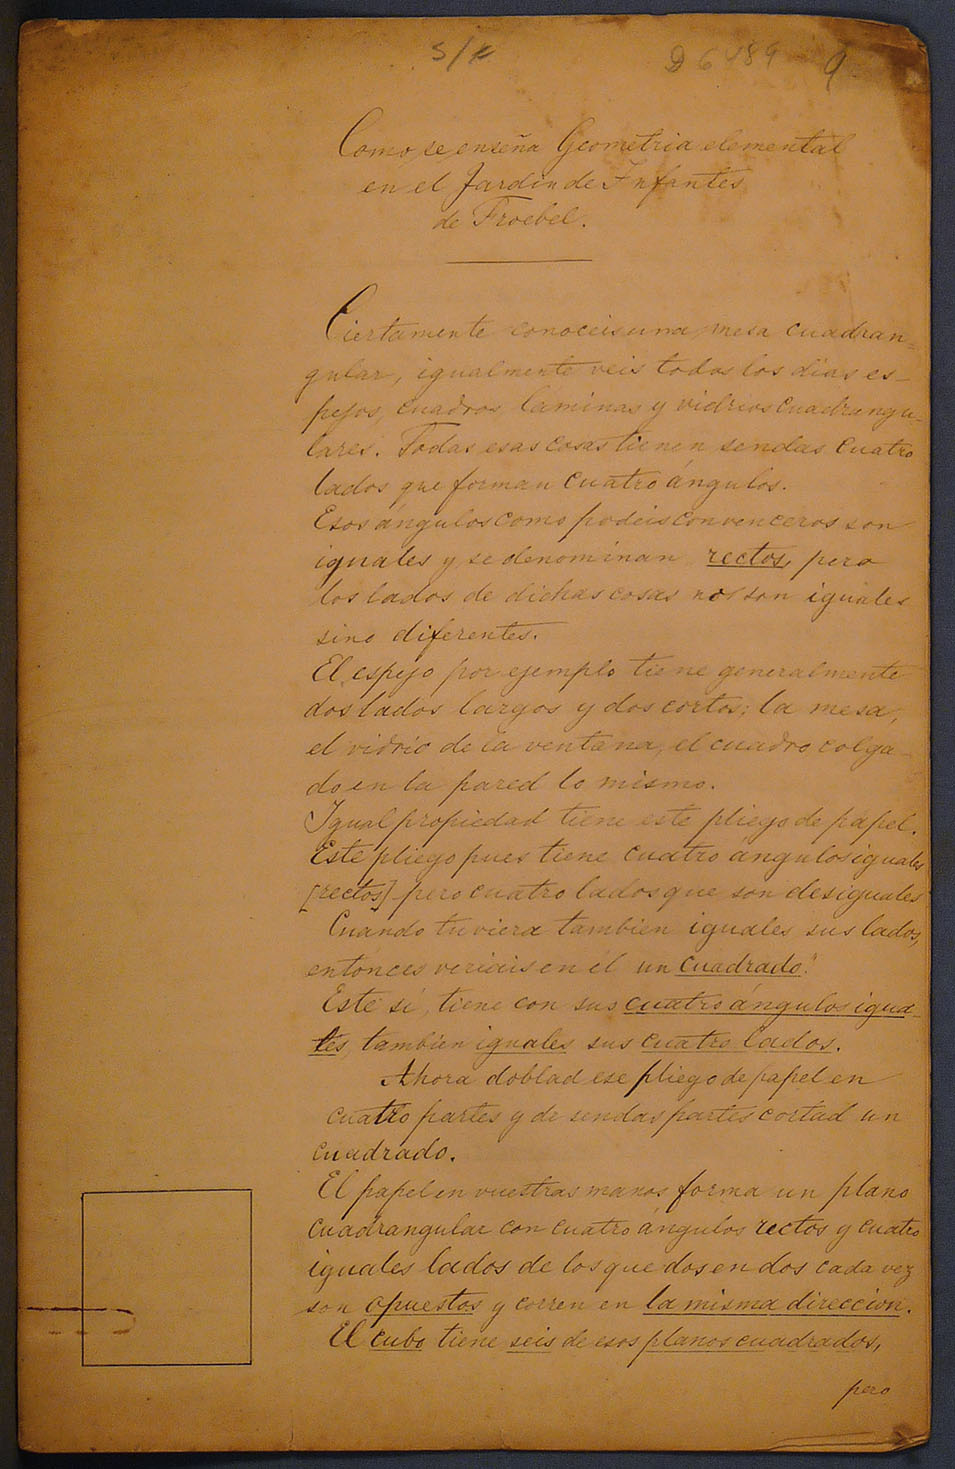 S/f
D 6489 9
Como se enseña Geometria elemental
en el Jardin de Infantes
de Froebel.
Ciertamente conoceis una mesa cuadran=
gular, igualmente veis todos los dias es-
pejos, cuadros, laminas y vidrios cuadrangu-
lares. Todas esas cosas tienen sendas cuatro
lados que forman cuatro ángulos.
Esos ángulos como podeis convenceros son
iguales y se denominan rectos, pero
los lados de dichas cosas no son iguales
sino diferentes.
El espejo por ejemplo tiene generalmente
dos lados largos y dos cortos; la mesa,
el vidrio de la ventana, el cuadro colga-
do en la pared lo mismo.
Igual propiedad tiene este pliego de papel.
Este pliego pues tiene cuatro ángulos iguales
[rectos] pero cuatro lados que son desiguales
Cuando tuviera tambien iguales sus lados,
entonces veriais en él un cuadrado."
Este sí, tiene con sus cuatro ángulos igua-
les, tambien iguales sus cuatro lados.
Ahora doblad ese pliego de papel en
cuatro partes y de sendas partes cortad un
cuadrado.
El papel en vuestras manos forma un plano
cuadrangular con cuatro ángulos rectos y cuatro
iguales lados de los que dos en dos cada vez
son opuestos y corren en la misma direccion.
El cubo tiene seis de esos planos cuadrados,
pero